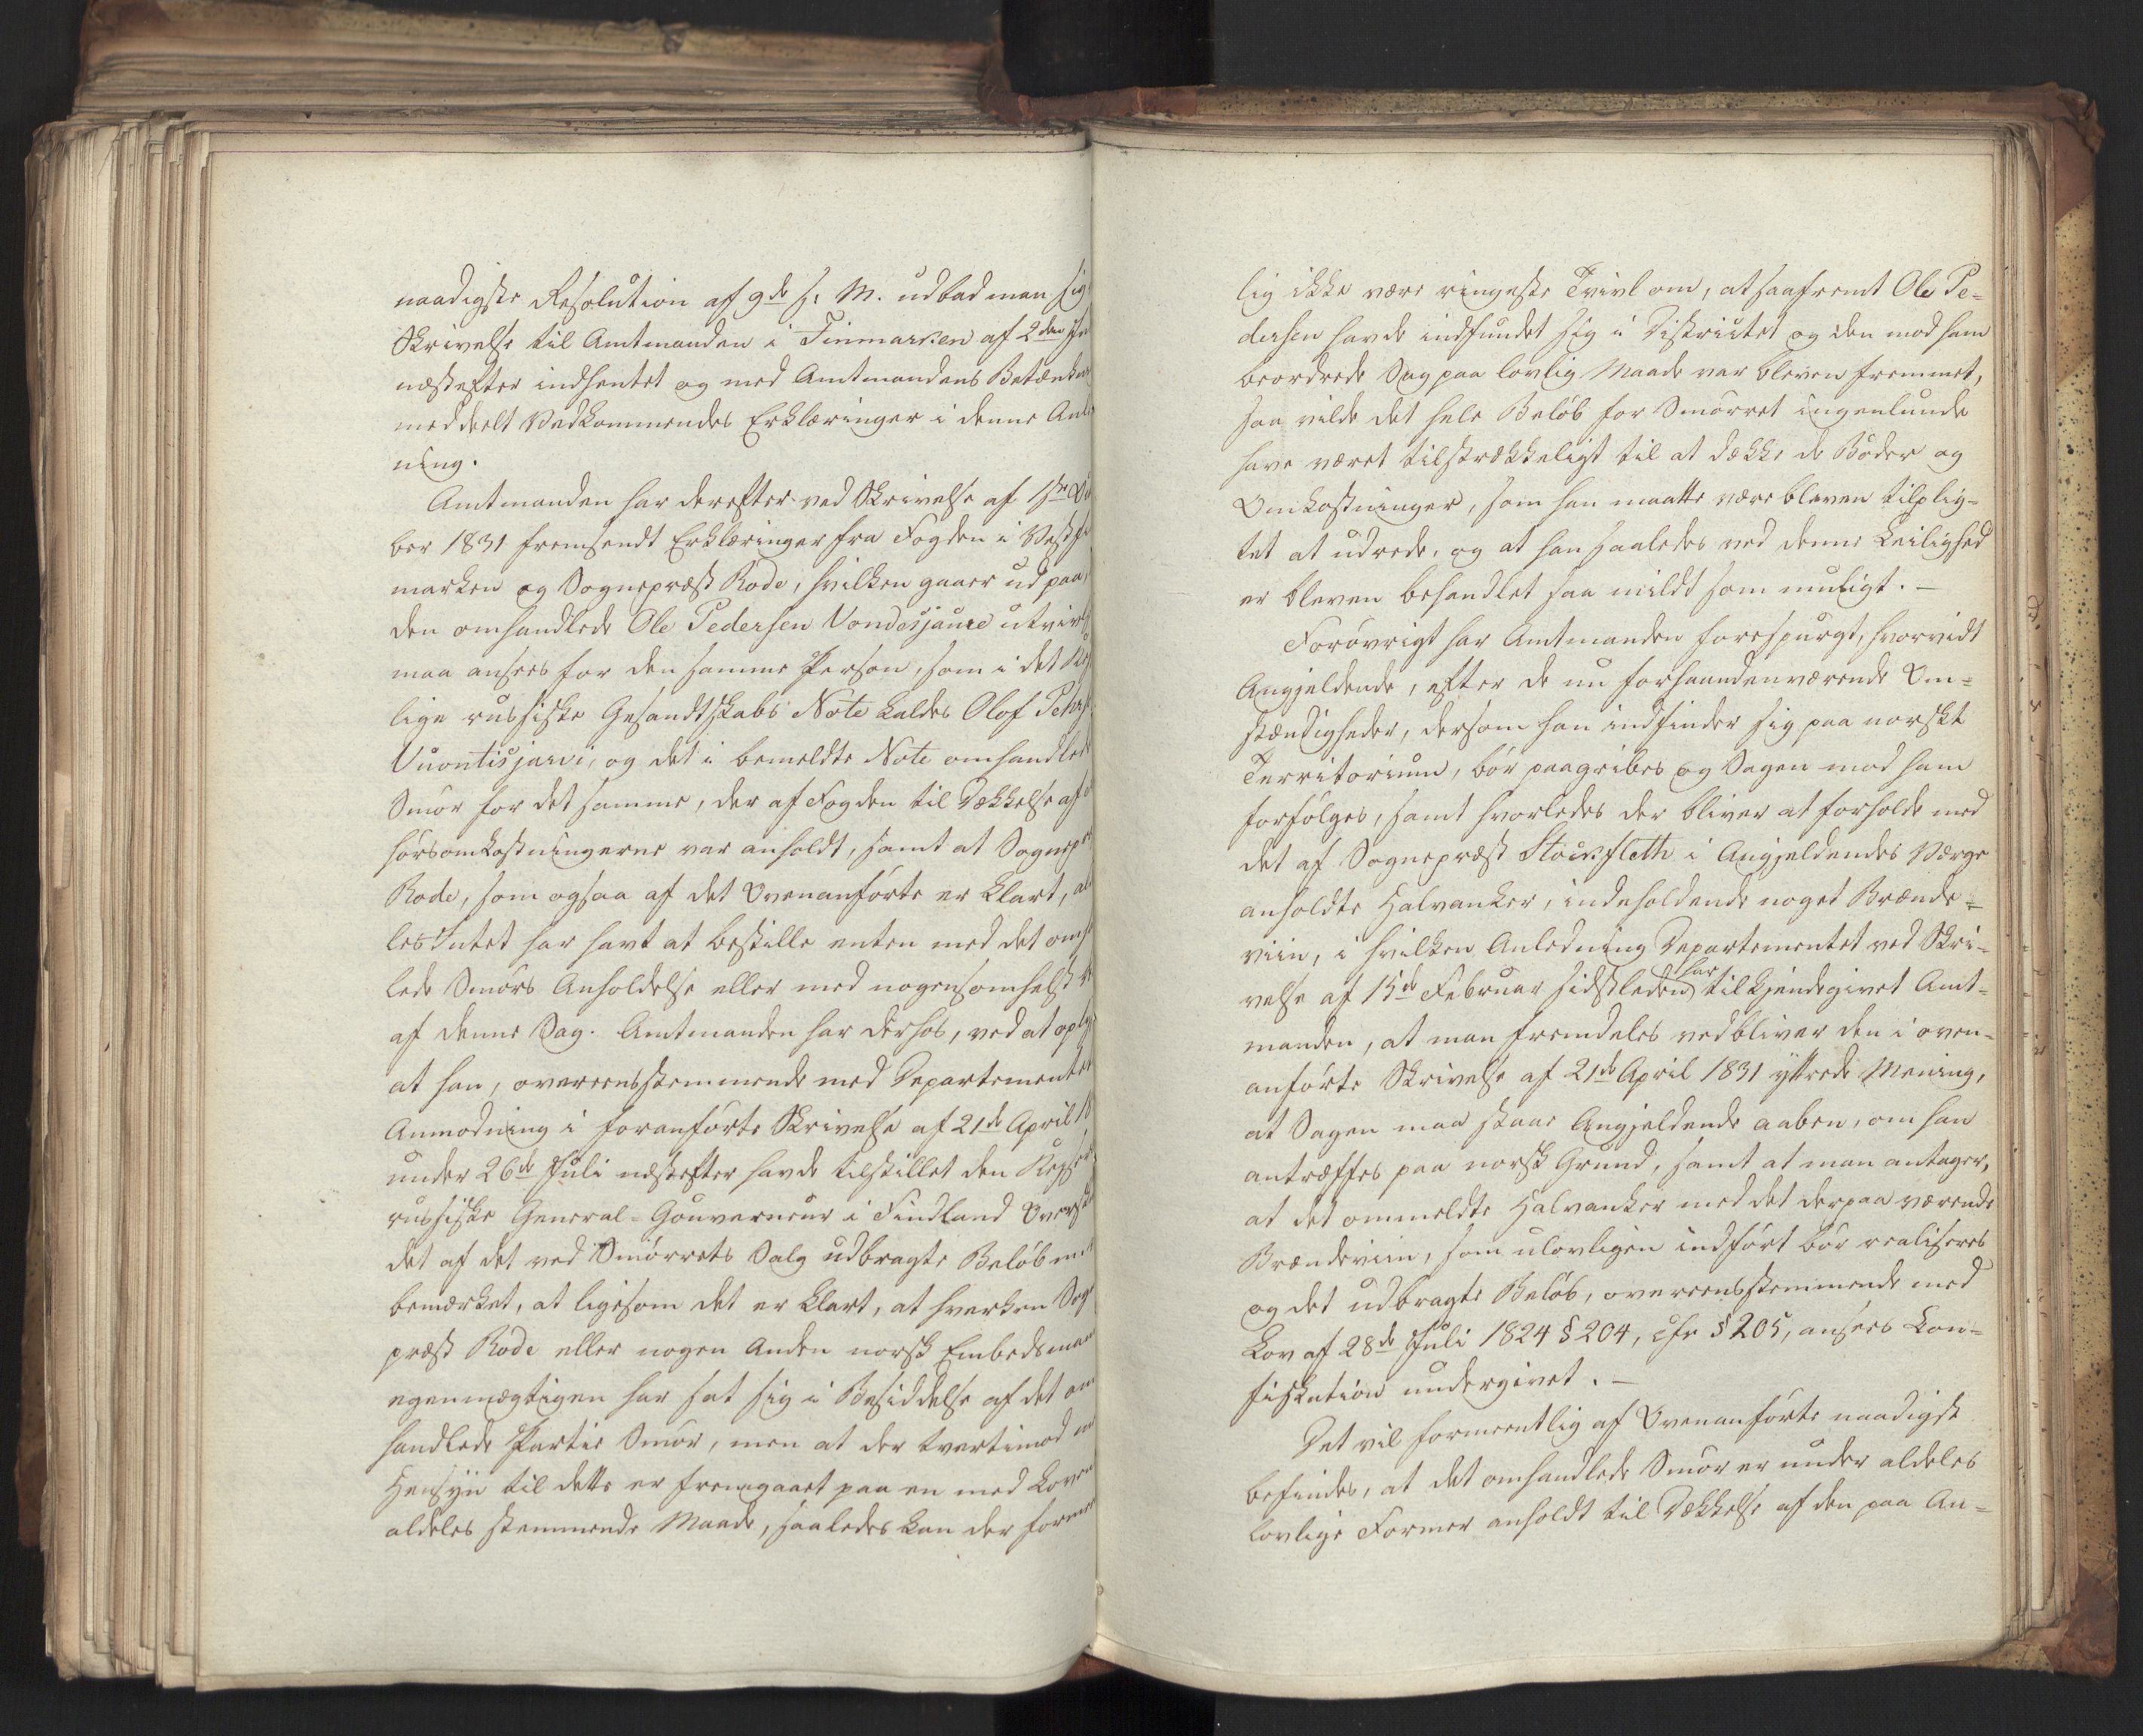 naadigste Resolution af 9de s. M. udbad man sig
Skrivelse til Amtmanden i Finmarken af 2den
næstefter indhentet og med Amtmandens Betænkn
meddeelt Vedkommendes Erklæringer i denne Anled
ning.
Amtmanden har derefter ved Skrivelse af
ber 1831 fremsendt Erklæringer fra Fogden i Vestfin
marken og Sognepræst Rode, hvilken gaaer ud paa,
den omhandlede Ole Pedersen Vondesjaure utvivls
maa ansees for den samme Person, som i det Keyser
lige russiske Gesandtskabs Note kaldes Olof Pehrs
Vuontisjarvi, og det i bemeldte Note omhandlede
Smør for det samme, der af Fogden til Dækkelse af
hørsomkostningerne var anholdt, samt at Sognepr
Rode, som ogsaa af det Ovenanførte er klart, al
les Intet har havt at bestille enten med det omh
lede Smørs Anholdelse eller med nogensomhelst
af denne Sag. Amtmanden har derhos, ved at oply
at han, overeensstemmende med Departementets
Anmodning i foranførte Skrivelse af 21de April 18
under 26de Juli næstefter havde tilstillet den Keyser
russiske General-Gouverneur i Findland Oversk
det af det ved Smørrets Salg udbragte Beløb
bemærket, at ligesom det er klart, at hverken Sogne
præst Rode eller nogen Anden norsk Embedsmand
egenmægtigen har sat sig i Besiddelse af det om
handlede Partie Smør, men at der tvertimod
Hensyn til dette er fremgaaet paa en med Loven
aldeles stemmende Maade, saaledes kan der formeent
lig ikke være ringeste Tvivl om, at saafremt Ole Pe=
dersen havde indfundet sig i Districtet og den mod ham
beordrede Sag paa lovlig Maade var bleven fremmet,
saa vilde det hele Beløb for Smørret ingenlunde
have været tilstrækkeligt til at dække de Bøder og
Omkostninger, som han maatte være bleven tilplig=
tet at udrede, og at han saaledes ved denne Leilighed
er bleven behandlet saa mildt som muligt. –
Forøvrigt har Amtmanden forespurgt, hvorvidt
Angjeldende, efter de nu forhaandenværende Om=
stændigheder, dersom han indfinder sig paa norskt
Territorium, bør paagribes og Sagen mod ham
forfølges, samt hvorledes der bliver at forholde med
det af Sognepræst Stockfleth i Angjeldendes Værge
anholdte Halvanker, indeholdende noget Brænde=
viin, i hvilken Anledning Departementet ved Skri=
velse af 15de Februar sidstleden har tilkjendegivet Amt=
manden, at man fremdeles vedbliver den i oven=
anførte Skrivelse af 21de April 1831 yttrede Mening,
at Sagen maa staae Angjeldende aaben, om han
antræffes paa norsk Grund, samt at man antager,
at det ommeldte Halvanker med det derpaa værende
Brændeviin, som ulovligen indført bør realiseres
og det udbragte Beløb, overeensstemmende med
Lov af 28de Juli 1824 § 204, cfr § 205, ansees Con=
fiskation undergivet. –
Det vil formeentlig af Ovenanførte naadigst
befindes, at det omhandlede Smør er under aldeles
lovlige Former anholdt til Dækkelse af den paa An=